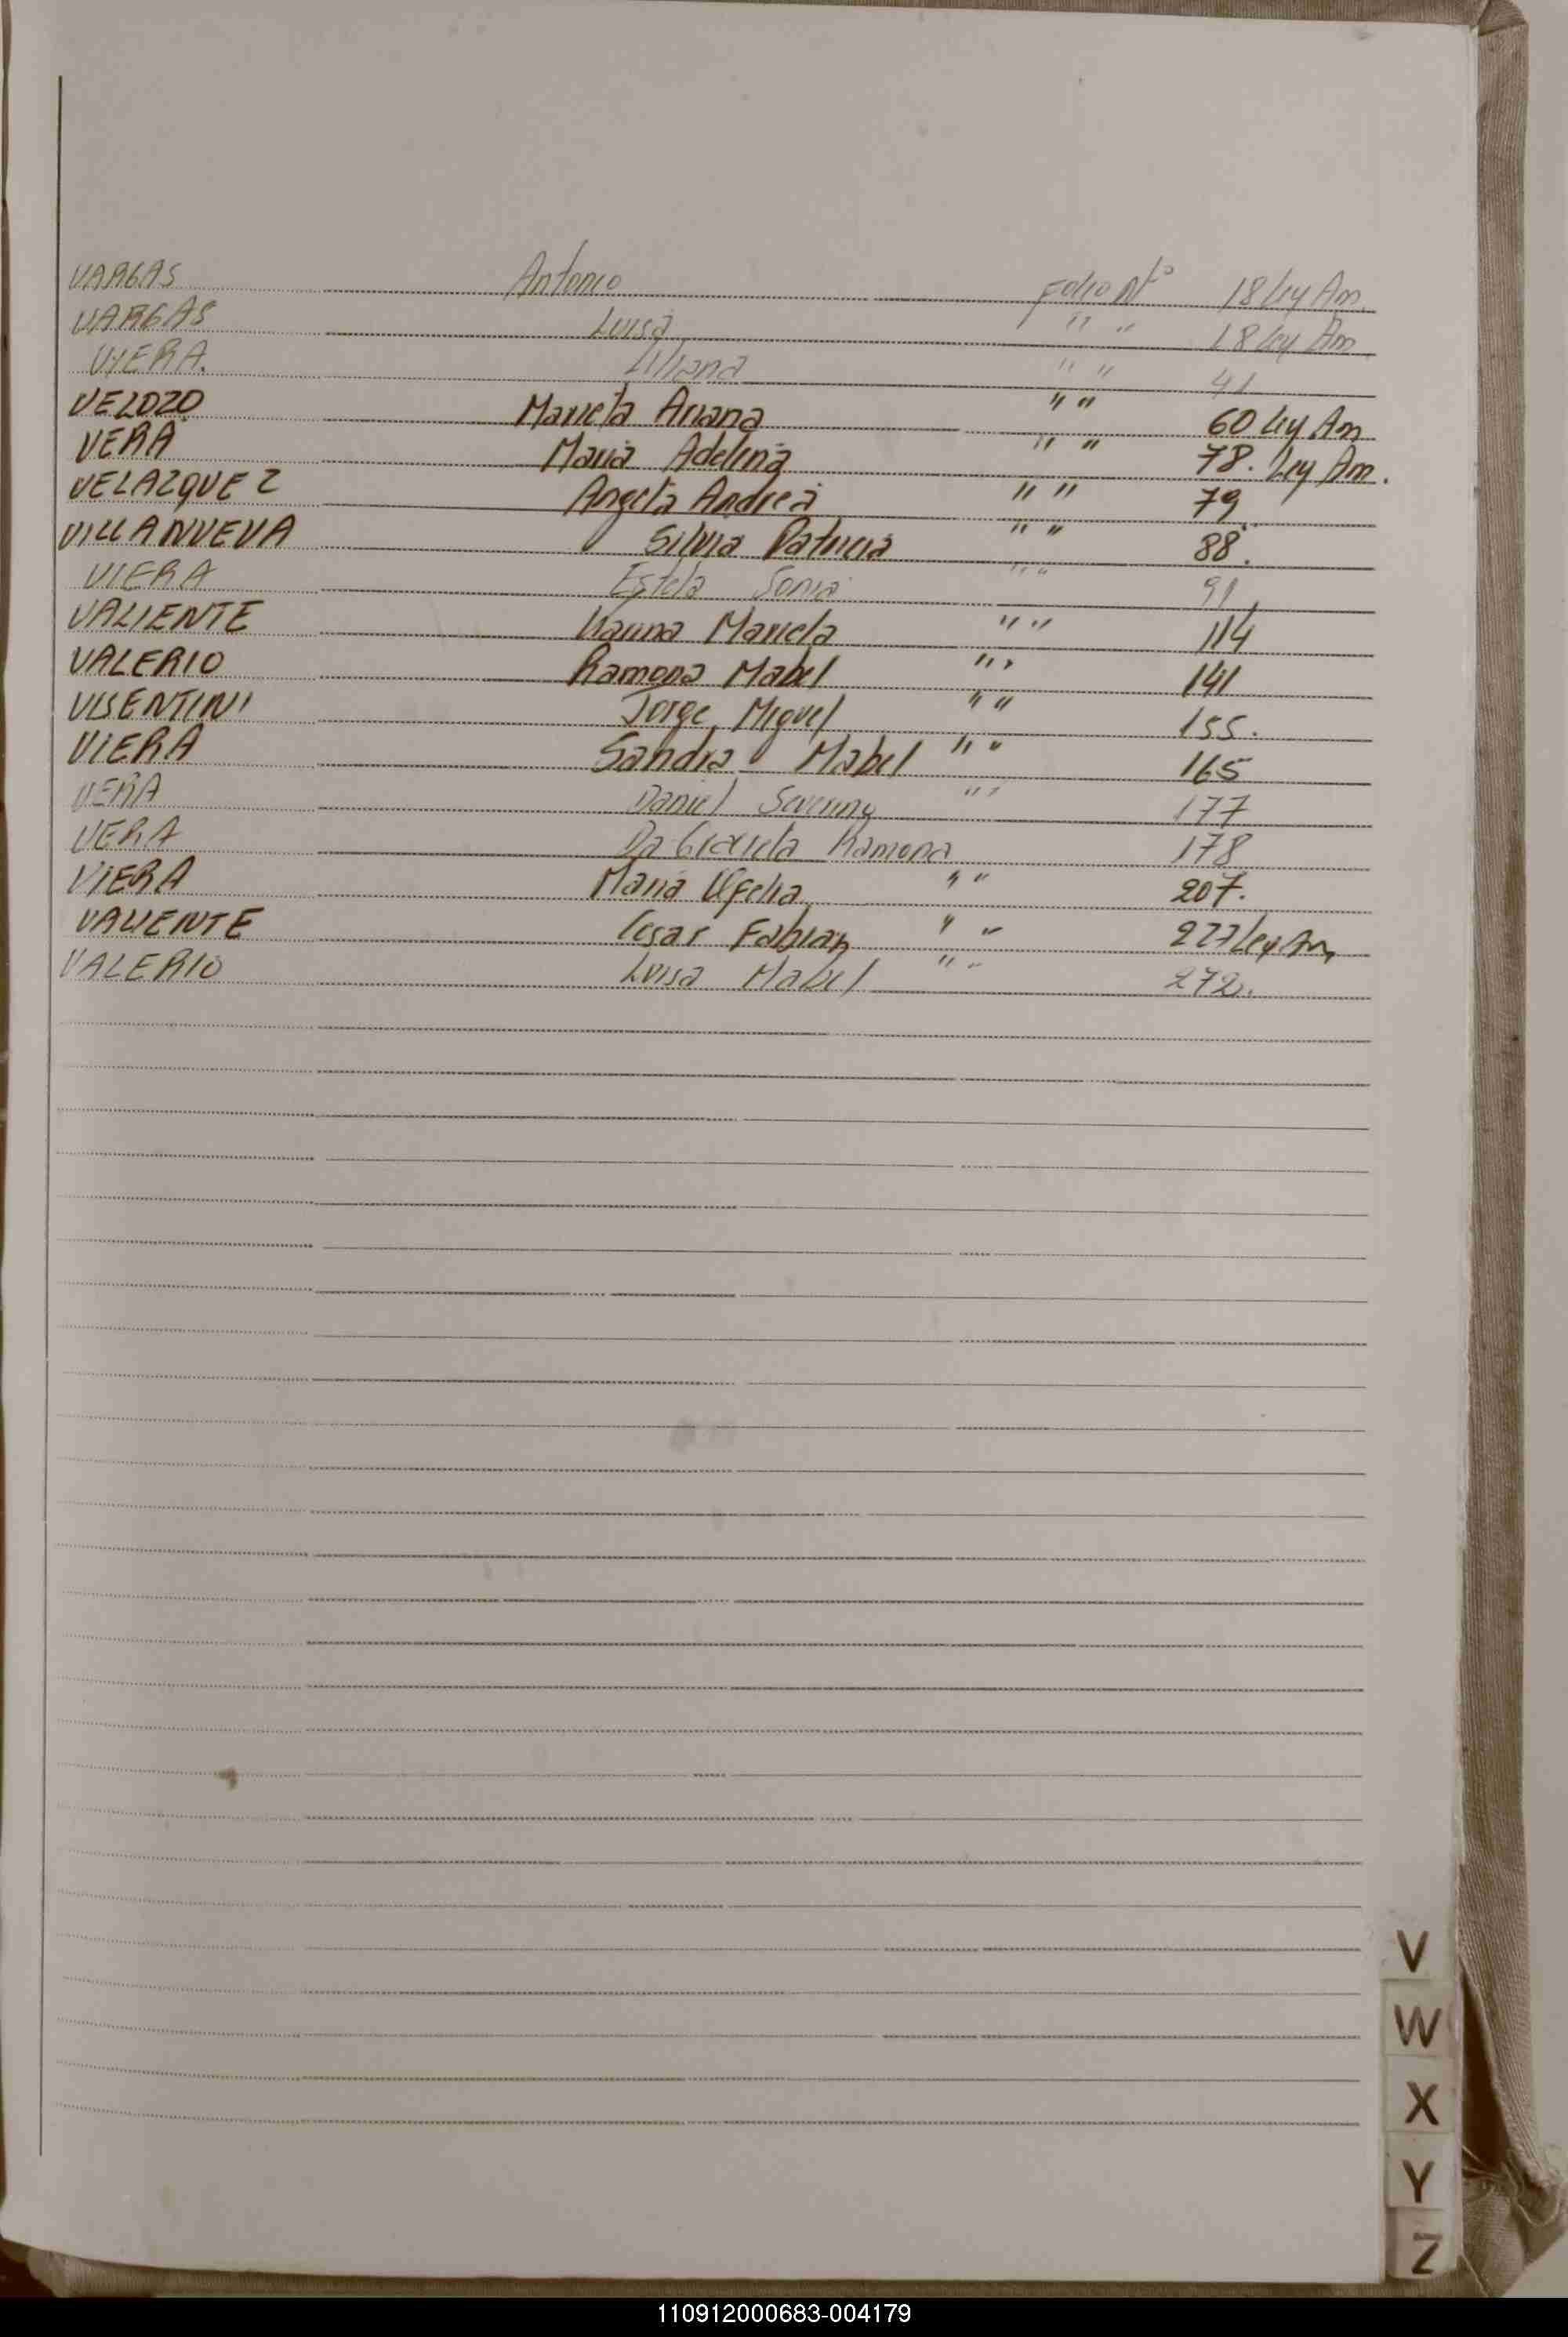 VARGAS Antonio Folio Nº 18 Ley Am.
VARGAS Luisa " " 18 Ley Am
VIERA. Liliana " " 41
VELOZO Mariela Ariana " " 60 Ley Am
VERA Maria Adelina " " 78. Ley Am.
VELAZQUEZ Angela Andrea " " 79
VILLANUEVA Silvia Patricia " " 88.
VIERA Estela Sonia " " 91
VALIENTE Karina Mariela " " 114
VALERIO Ramona Mabel " " 141
VISENTINI Jorge Miguel " " 155.
VIERA Sandra Mabel " " 165
VERA Daniel Severino " " 177
VERA Da Graciela Ramona 178
VIERA Maria Ofelia " " 207.
VALIENTE Cesar Fabian " " 227 Ley Am
VALERIO Luisa Mabel " " 272.
V
W
X
Y
Z
110912000683-004179